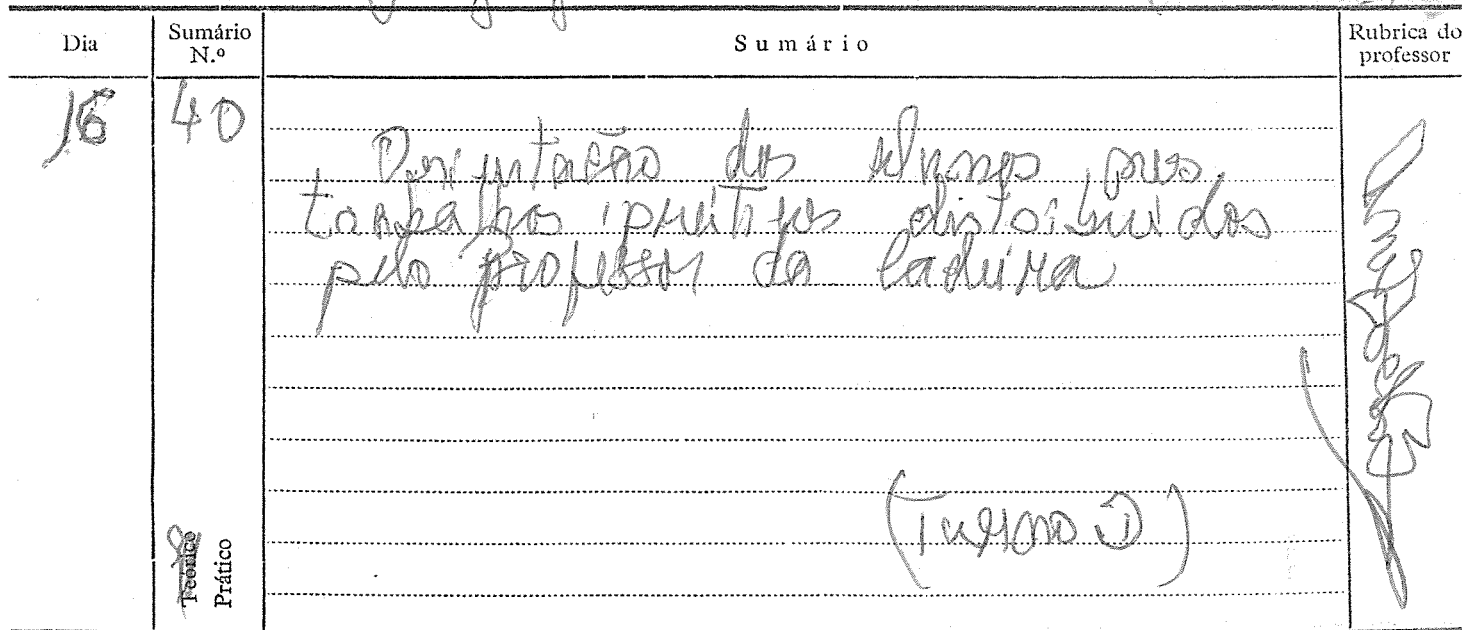 Dia
Sumário N.º
Sumário
Rubrica do professor
16
40
Orientação dos alunos nos
trabalhos práticos distribuidos
pelo professor da Cadeira
(Turno 1)
Teórico
Prático